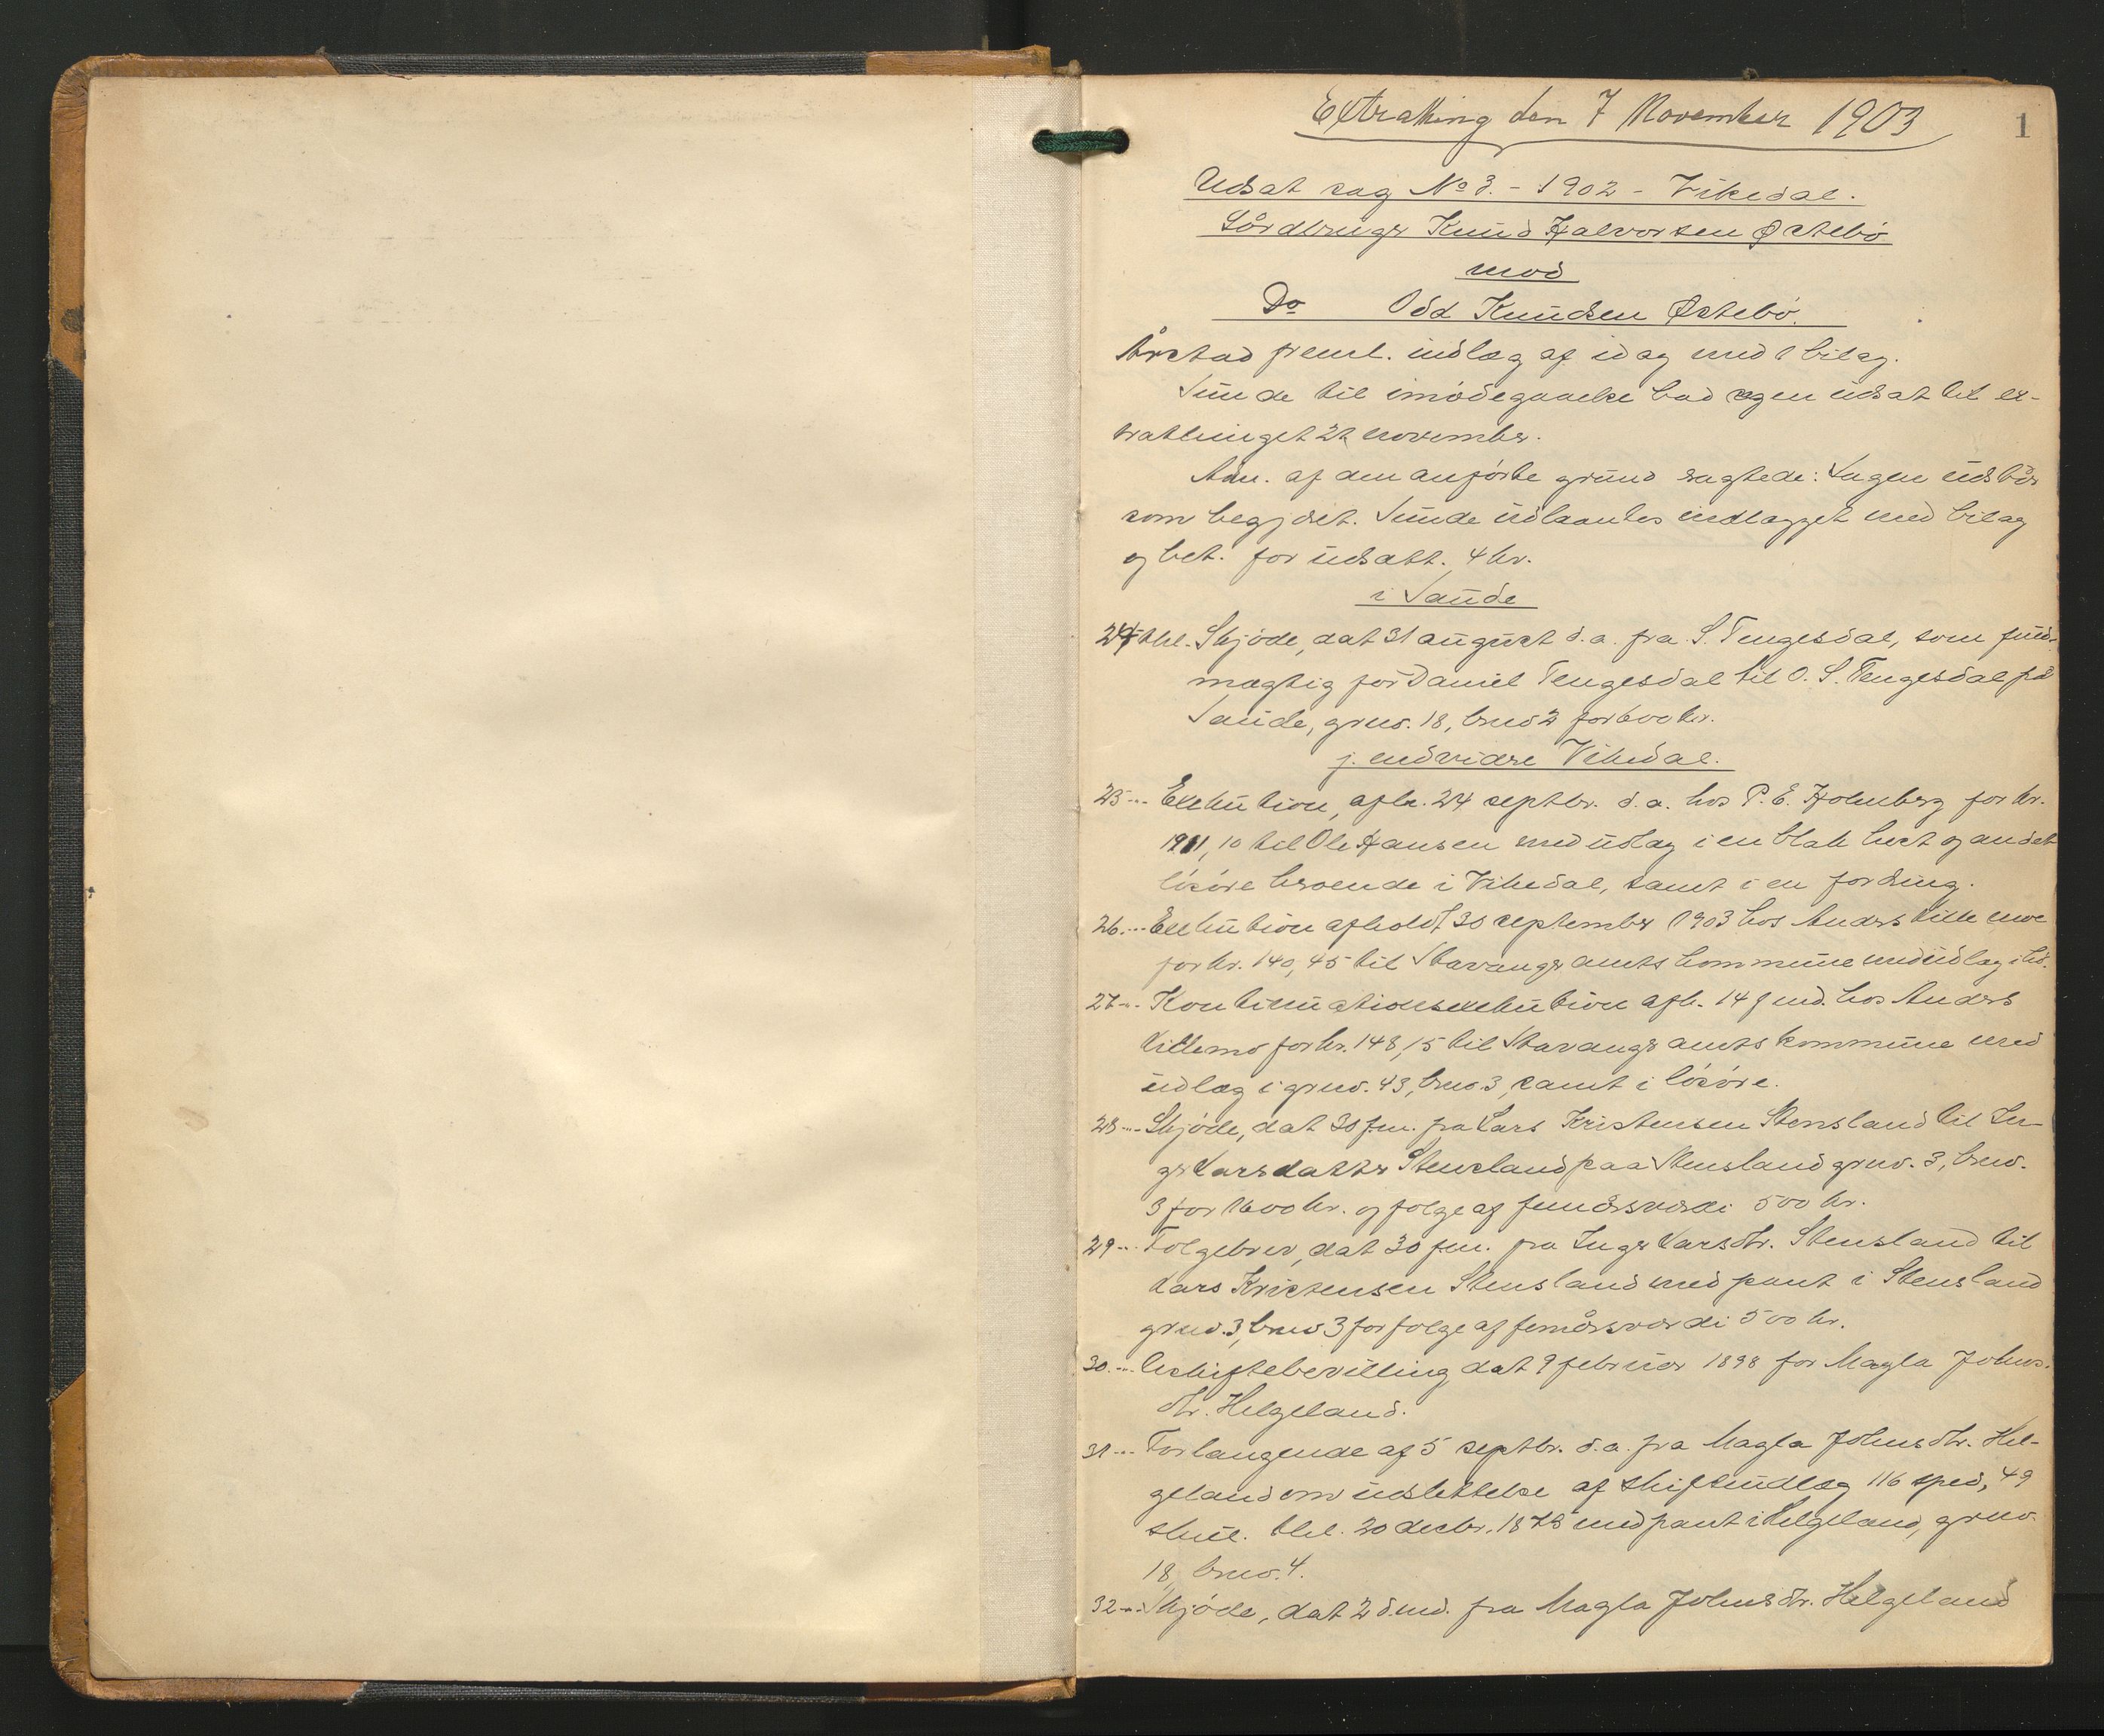 Extrating den 7 November 1903
1
Udsat sag No 3. - 1902 - Vikedal.
Gårdbruger Knud Halvorsen Østebö
mod
Do Odd Knudsen Østebö.
Årstad freml. indlæg af idag med 1 bilag.
Sunde til imødegaaelse bad sagen udsat til ex-
tratinget 21 november.
Adm. af den anførte grund eragtede: Sagen udstår
som begjært. Sunde udlaantes indlægget med bilag
og bet. for udsætt. 4 kr.
i Saude
24 thl. Skjöde, dat 31 august d.a. fra S. Tengesdal, som fuld-
mægtig for Daniel Tengesdal til O. S. Tengesdal på
Saude, grno. 18, brno 2 for 600 kr.
j. endvidre Vikedal.
25 ... Exekution, afh. 24 septbr. d.a. hos P. E. Holmberg for kr.
1911,10 til Ole Hansen med udlæg i en blak hest og andet
lösöre beroende i Vikedal, samt i en fordring.
26 ... Exekution afholdt 30 september 1903 hos Anders Littlemoe
for kr. 140,45 til Stavanger amtskommune med udlæg i
27 ... Kontinuationsexekution afh. 14 f. md. hos Anders
Littlemo for kr. 148,15 til Stavanger amtskommune med
udlæg i grno. 43, brno. 3, samt i lösöre.
28 ... Skjöde, dat 30 f.m. fra Lars Kristensen Stensland til In-
ger Larsdatter Stensland paa Stensland grno. 3, brno.
3 for 1600 kr. og folge af femårsværdi 500 kr.
29 ... Folgebrev, dat 30 f.m. fra Inger Larsdtr. Stensland til
Lars Kristensen Stensland med pant i Stensland
grno. 3, brno 3 for folge af femårsværdi 500 kr.
30 ... Uskiftebevilling dat 9 februar 1898 for Magla Johns-
dtr. Helgeland.
31 ... Forlangende af 5 septbr. d.a. fra Magla Johnsdtr. Hel-
geland om udslettelse af skifteudlæg 116 spd, 49
skill. thl. 20 decbr. 1878 med pant i Helgeland, grno.
18, brno. 4.
32 ... Skjöde, dat 2 d.md. fra Magla Johnsdtr. Helgeland